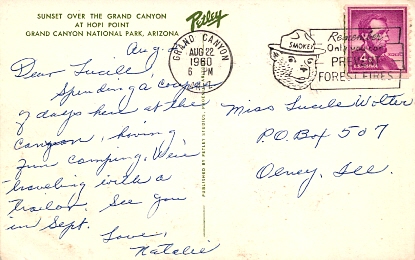 SUNSET OVER THE GRAND CANYON
AT HOPI POINT
GRAND CANYON NATIONAL PARK, ARIZONA
Petley
Aug.
Dear Lucile,
Spending a couple
of days here at the
Canyon, having
fun camping. We're
traveling with a
trailer. See you
in Sept.
Love,
Natalie
PUBLISHED BY PETLEY STUDIOS,
GRAND CANYON
AUG 22
6 PM
1960
ARIZ.
SMOKEY
Remember
Only you can
PREVENT
FOREST FIRES
4¢
Miss Lucile Wolter
P.O. Box 507
Olney, Ill.